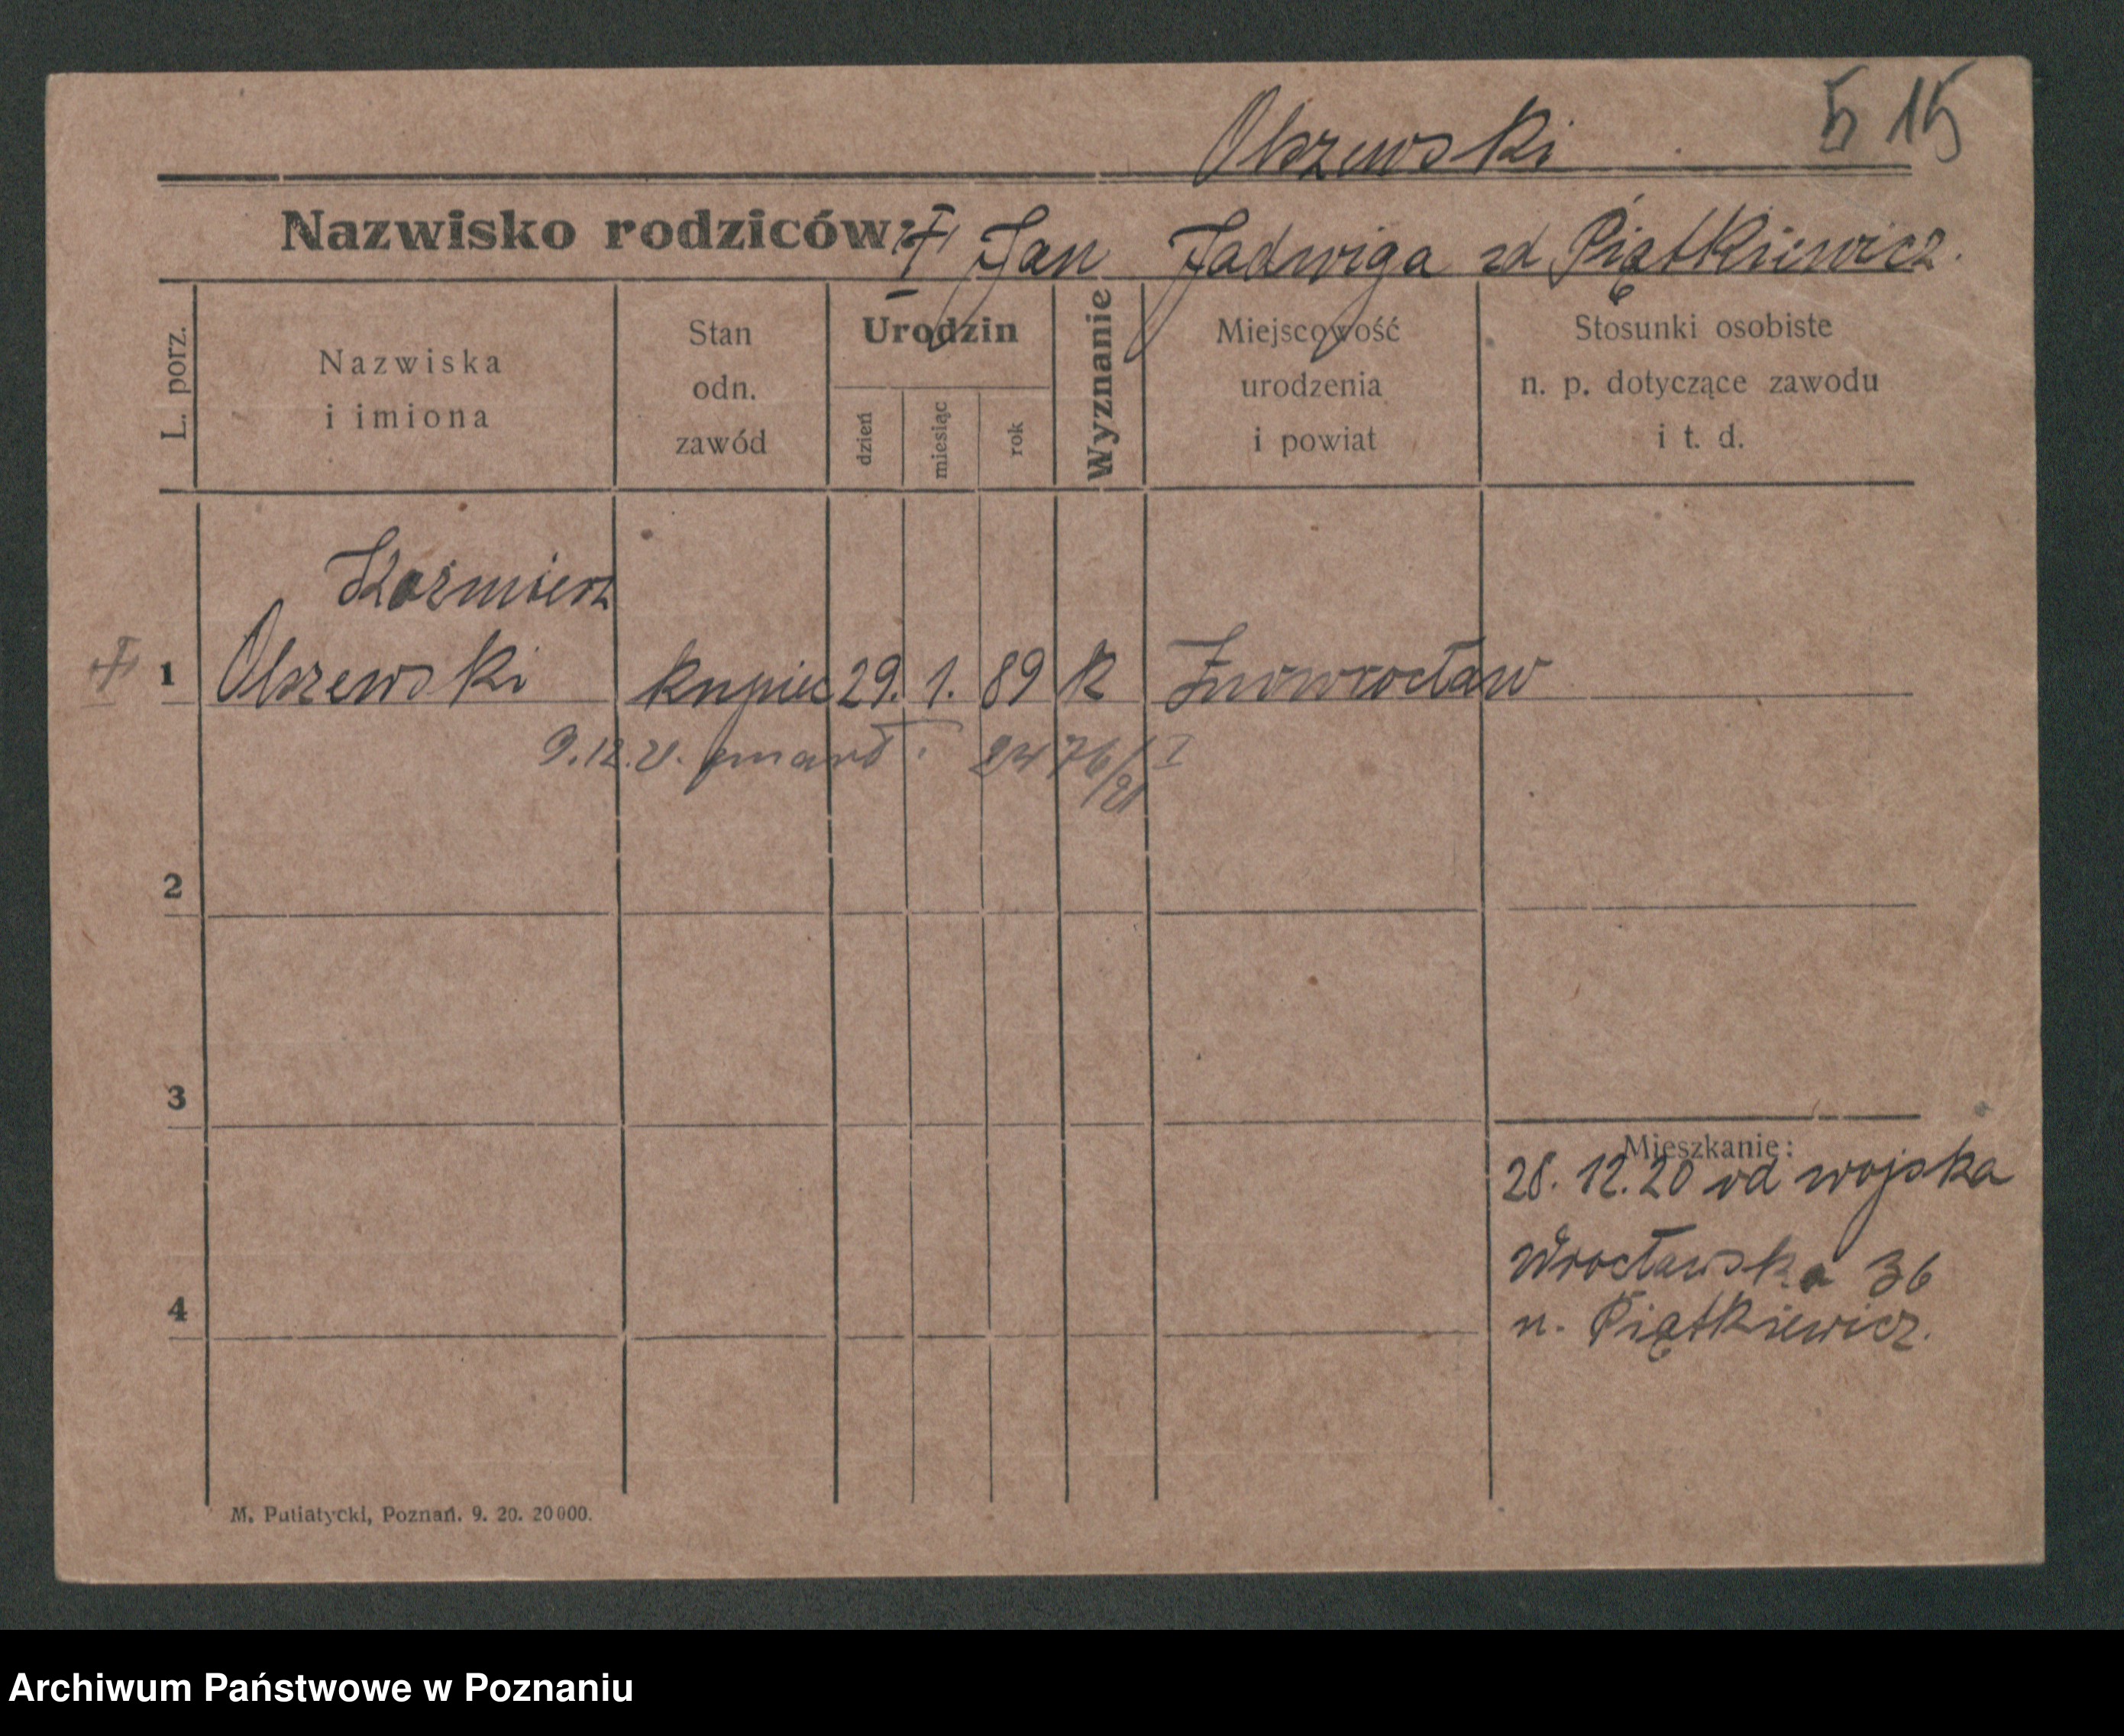 Olszewski 5 15
Nazwisko rodziców: † Jan Jadwiga zd Piątkiewicz.
L. porz.
Nazwiska
i imiona
Stan
odn.
zawód
Urodzin
dzień
miesiąc
rok
Wyznanie
Miejscowość
urodzenia
i powiat
Stosunki osobiste
n. p. dotyczące zawodu
i t. d.
Kaźmierz
† 1 Olszewski kupiec 29. 1. 89 R Inowrocław
9.12.21. zmarł. 2476/21 I
2
3
4
Mieszkanie:
28. 12. 20 od wojska
Wrocławska 36
n. Piątkiewicz.
M. Putiatycki, Poznań. 9. 20. 20000.
Archiwum Państwowe w Poznaniu